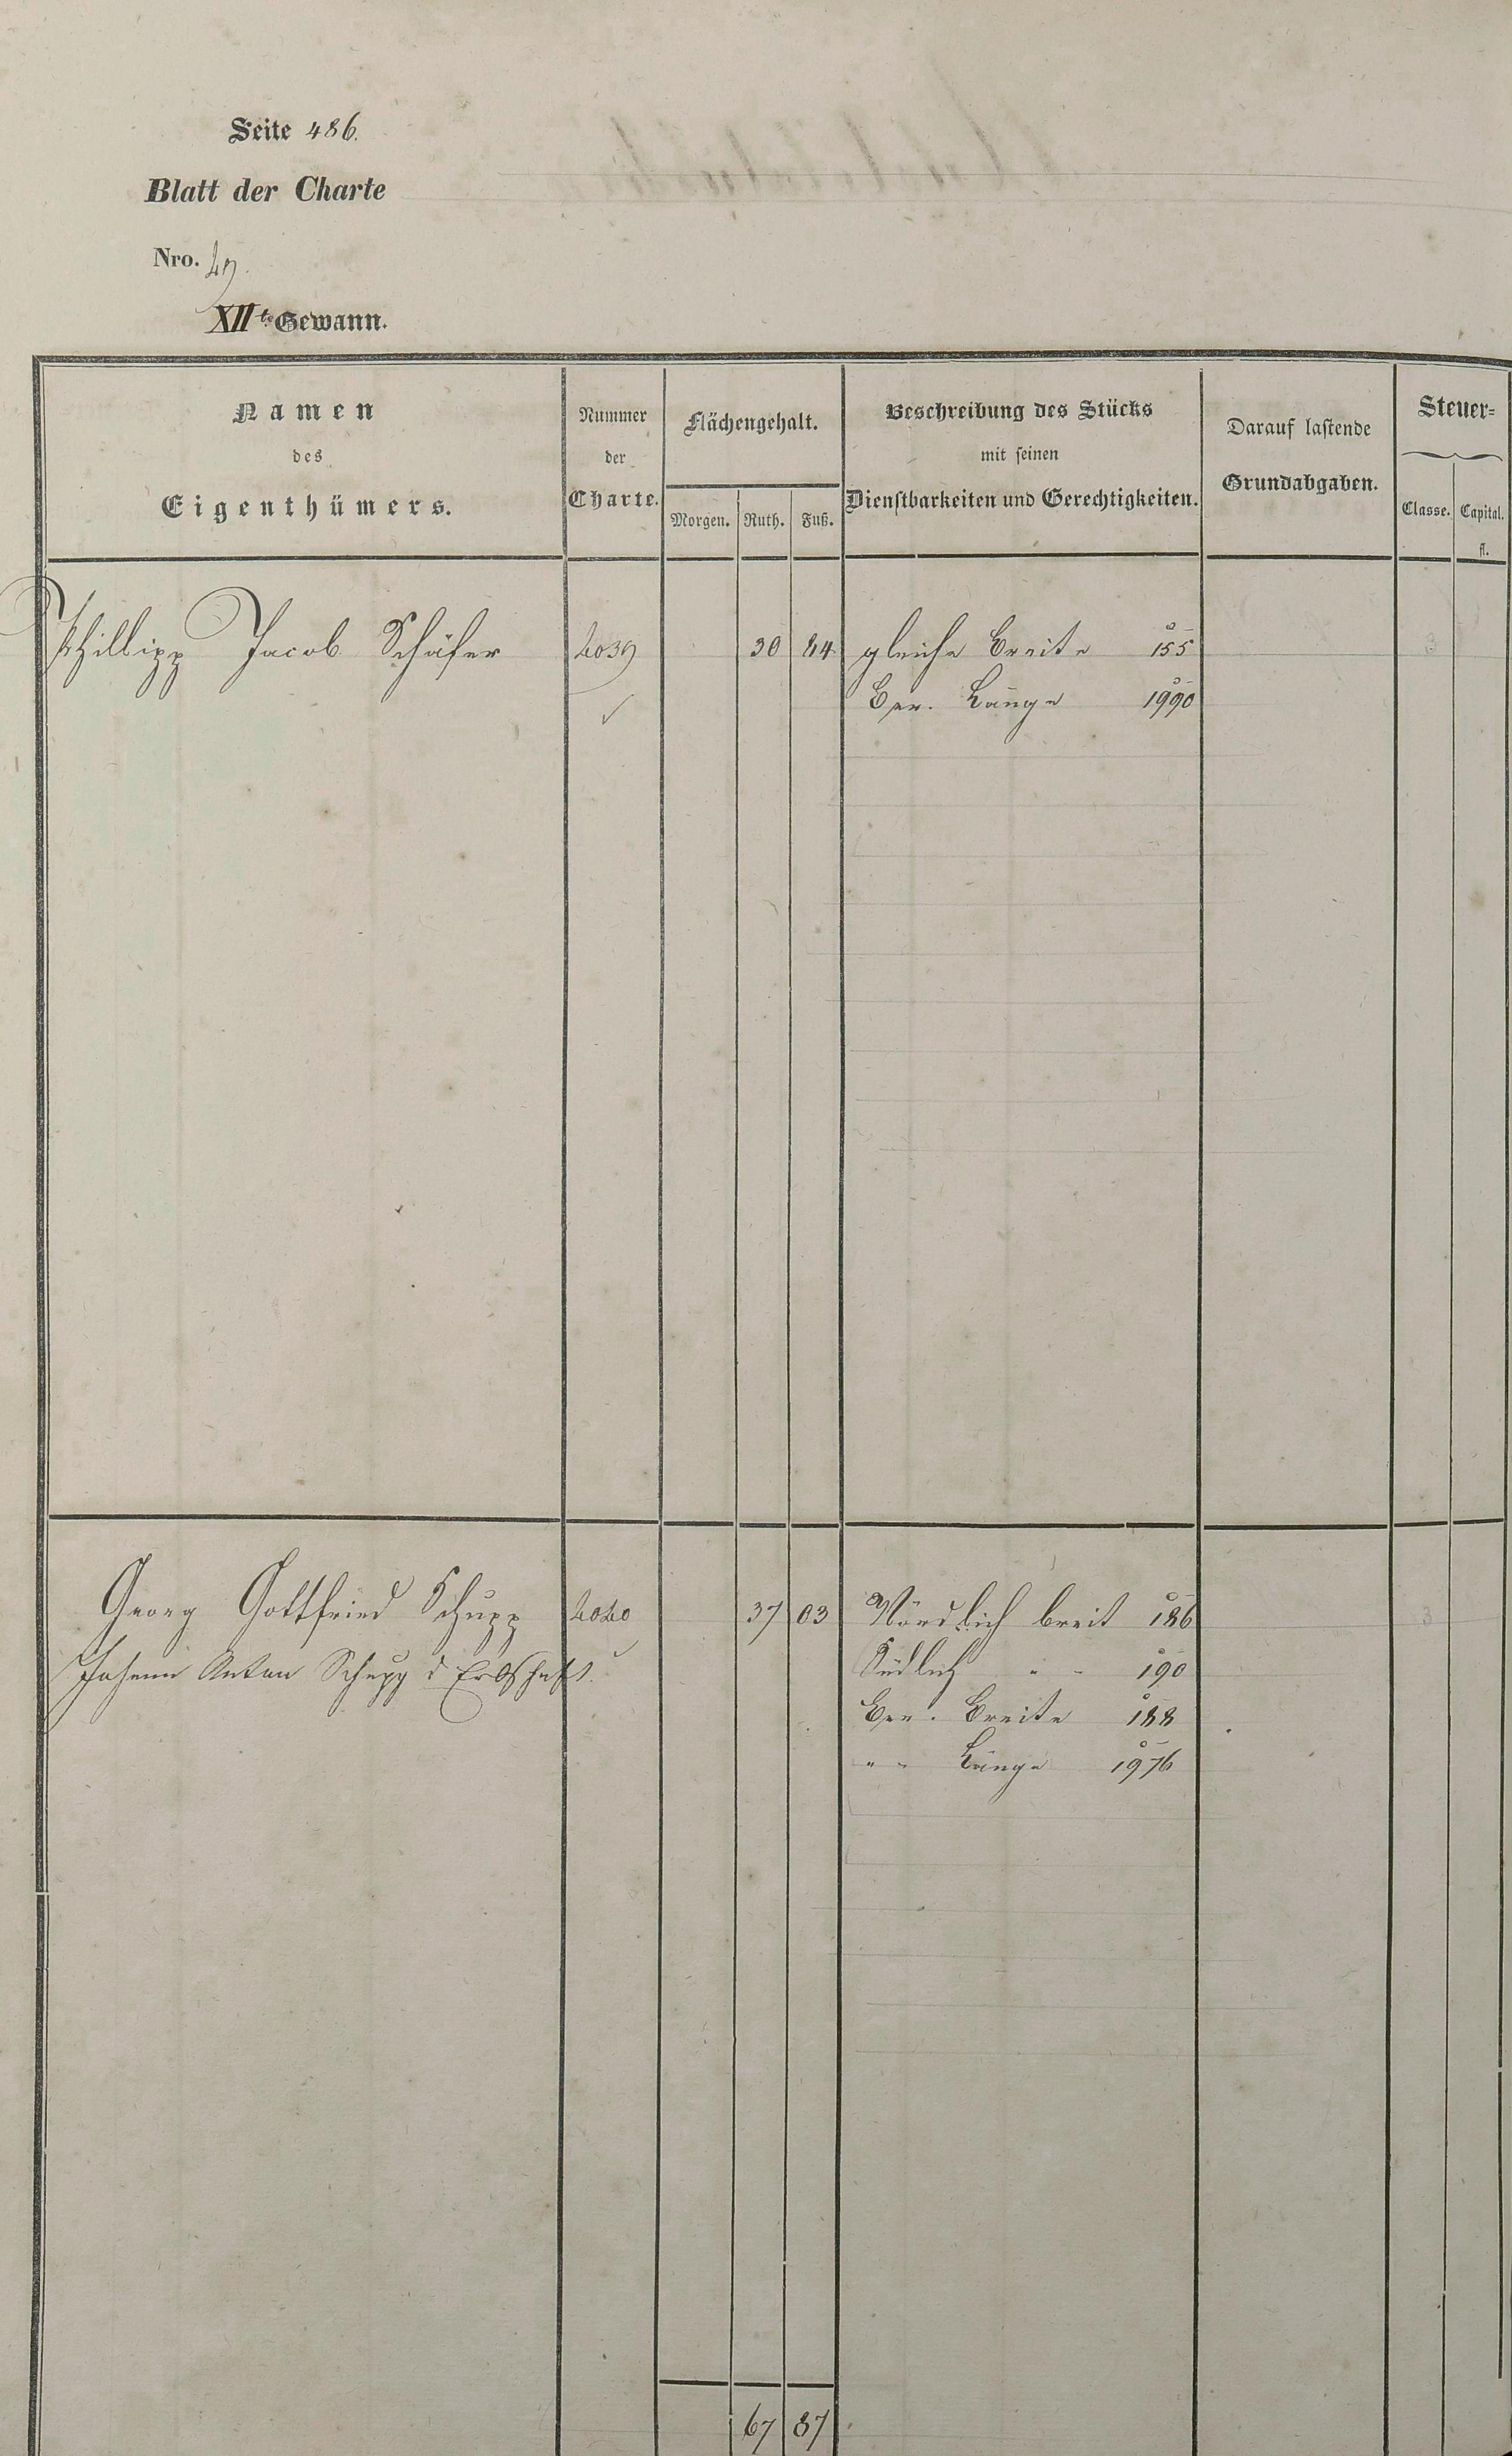 Seite 486.
Blatt der Charte
Nro. 49.
XIIte Gewann.
Namen
des
Eigenthümers.
Nummer
der
Charte.
Flächengehalt.
Morgen. Ruth. Fuß.
Beschreibung des Stücks
mit seinen
Dienstbarkeiten und Gerechtigkeiten.
Darauf lastende
Grundabgaben.
Steuer-
Classe. Capital.
fl.
Phillipp Jacob Schäfer 4039 30 84 gleiche Breite 155
Ber. Länge 1990
3
Georg Gottfried Schupp 4040 37 03 Nördlich breit 186
3
Johann Anton Schupp d Erbschaft. Südlich " - 190
Ber. Breite 188
" - Länge 1970
67 87